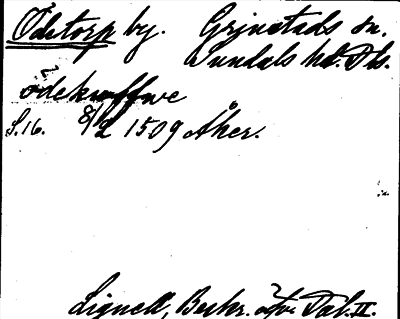 Ödetorp by. Grinstads sn.
Sundals hd. Dls.
ödekruffwe
S. 16. 8/2 1509 Åker.
Lignell, Beskr. öfv. Dal. II.